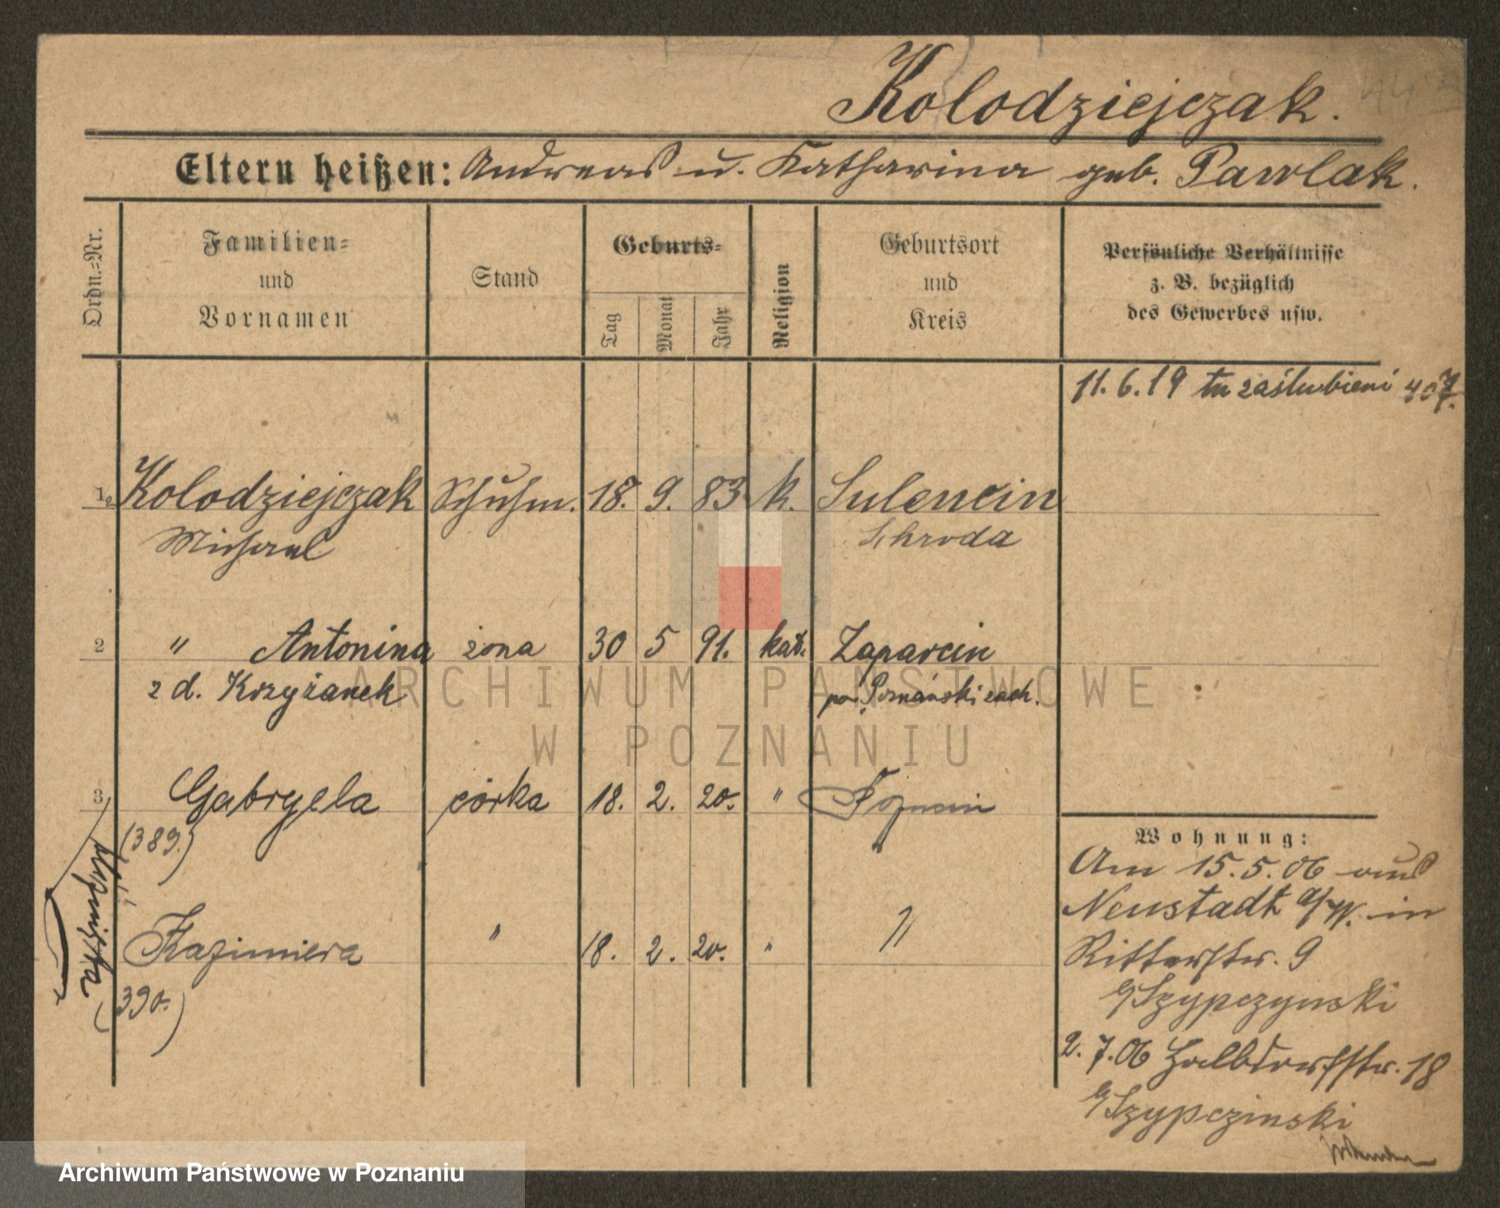 Kolodziejczak.
Eltern heißen: Andreas u. Katharina geb. Pawlak.
Ordn.=Nr.
Familien=
und
Vornamen
Stand
Geburts=
Tag
Monat
Jahr
Religion
Geburtsort
und
Kreis
Persönliche Verhältnisse
z. B. bezüglich
des Gewerbes usw.
11.6.19 tu zaślubieni 407.
1. Kolodziejczak Schuhm. 18. 9. 83 k. Sulencin
Michael Schroda
2 " Antonina żona 30 5 91. kat. Zaparcin
z d. Krzyżanek pow. Poznański zach.
3 Gabryela córka 18. 2. 20. " Poznań
(389.)
bliźniątka
Kazimiera " 18. 2. 20. " "
(390.)
Wohnung:
Am 15.5.06 aus
Neustadt a/W. in
Ritterstr. 9
b/Szypczynski
2.7.06 Halbdorfstr. 18
b/Szypczinski
ARCHIWUM PAŃSTWOWE
W POZNANIU
Archiwum Państwowe w Poznaniu